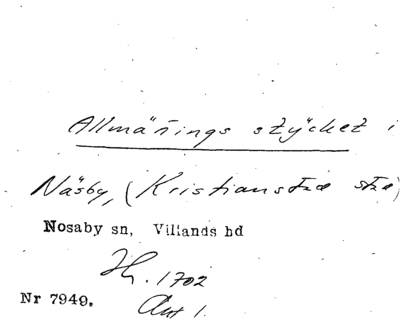 Allmänings stycket i
Näsby, (Kristianstad stad)
Nosaby sn, Villands hd
Jh. 1702
Nr 7949. Akt 1.